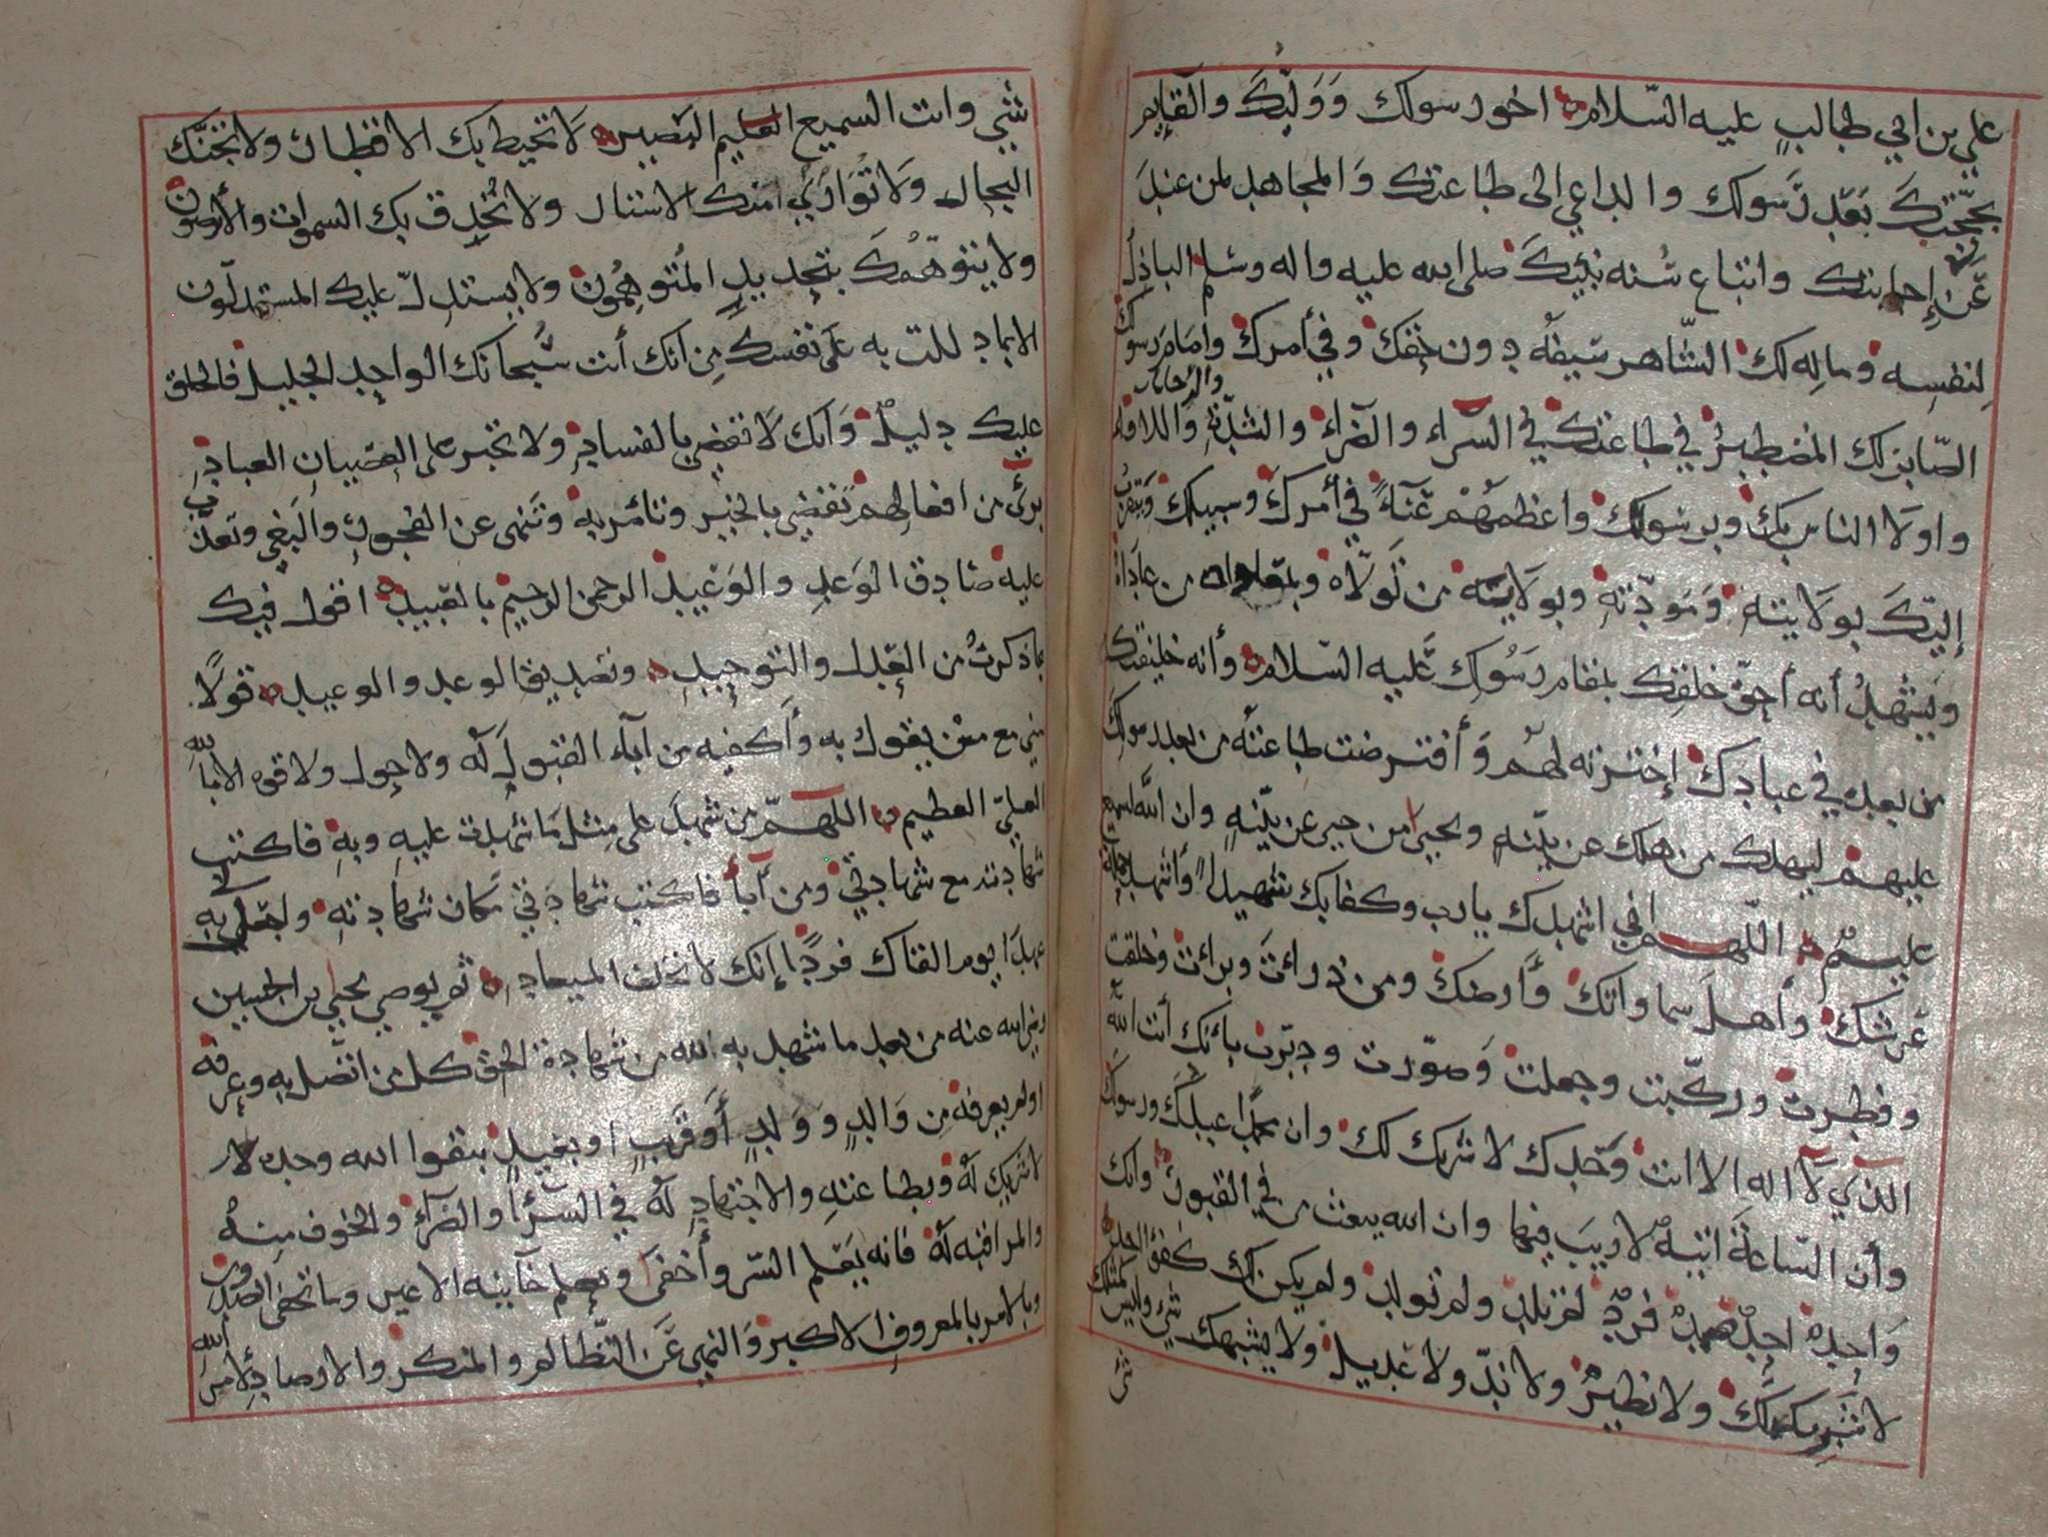 علي بن ابي طالبٍ عليه السّلام اخو رسولك وَوَليّكَ والقايم
بحجّتكَ بَعْد رَسولك والداعي الى طاعتك وَالمجاهد لمن عندَ
عَن إجابتك واتباع سُنه نبيّكَ صلى الله عليه واله وسلم الباذلُ
لنفسِه ومالِه لك الشّاهر سَيفهُ دون حقِك وفي أمرك وامام رسولك
الصّابر لك المضطبرُ في طاعتك في السّراء والضراء والشدّةِ والرخاء واللاواء
واولا الناس بكَ وبرسولك واعظمهُم عَنآءً في أمرك وسبيلك ويتقربُ
إليكَ بوَلايتهِ وَمَودّتهِ وبولاية من تَولاه وبمعاداه من عاداهُ
ويَشْهدُ أنه أحقّ خلقِك بمقام رَسُولِك عَليه السّلام وأنه خليفتك
من بعده في عبادِك إختَرته لهم وَأفترضت طاعتَهُ من بعد رسولك
عليهم ليهلك من هلك عن بيّنهٍ ويحيى من حيى عن بيّنهٍ وان الله لسميع
عليمٌ اللّهم اني اشهدك يا رب وكفا بك شهيداً وأشهد حملة
عَرشك وأهلَ سماواتك وأرضك ومن ذرات وبرات وخلقت
وفطرت وركّبت وجعلت وَصوّرت ودبّرت بأنك أنت اللّه
الذي لَآ اله الا انت وَحدك لا شريك لك وان محمداً عبدكَ ورسولكَ
وأن السّاعةَ اتيهٌ لا ريبَ فيها وان الله يبعث من في القبور وانك
وَاحدٌ احدٌ صمدٌ فردٌ لم تلد ولم تولد ولم يكن لك كفؤا احد
لا شريك لك ولا نظيرٌ ولا ندّ ولا عديل ولا يشبهك شيء وليس كمثلك
شي
شئي وانت السميع العليم البَصير لاَ تحيط بك الاقطار ولا تجنّك
البحار ولاَ تُوَاري منك الاستار ولا تُحدق بك السموات والأرضون
ولا يتوهّمُكَ بتحديدٍ المُتوهِّمُون ولا يستدلّ عليك المستدلّون
الا بما دللت به على نفسك من انك أنت سُبحانك الواحد الجليل فالخلق
عليك دليلٌ وَانك لاَ تقضي بالفساد ولا تجبر على العصيان العباد
برئٌ من افعالهم تقضي بالخير وتامر به وتنهى عن الفجور والبَغي وتعذب
عليه صَادِق الوَعدِ والوَعيد الرحمن الرحيم بالعبيد اقول فيك
بما ذكرتُ من العَدل والتوحيدِ وتصديق الوعد والوعيد قولاً
مني مع من يقول به وأكفيه من اباء القبول لَه ولا حول ولا قوه الا بالله
العليّ العظيم اللّهم من شهدَ على مثل مَا شهدت عليهِ وبهِ فاكتب
شهادته مع شهادتي ومن أبَا فاكتب شهادَتي مَكان شهادتهِ واجعل لي به
عهداً يوم القاك فردًا إنك لا تخلف الميعاد ثم يوصي يحيى بن الحسين
رضي الله عنه من بعد ما شهد به لله من شهادة الحق كل من اتصل به وعرفه
او لم يعرفه مِن وَالدٍ ووَلدٍ أوقَربٍ او بعيدٍ بتقوا الله وحده لا
لا شريك له وبطاعتهِ والاجتهادِ لَهُ في السّرآ والضرآءِ والخوف منهُ
والمراقبه لَه فانه يَعْلم السّر وأخفى ويعلم خآينه الاعين وما تخفى الصدور
وبالامر بالمعروفِ الاكبر وَالنهي عَن التظالم والمنكر والارصادِ لأمر الله